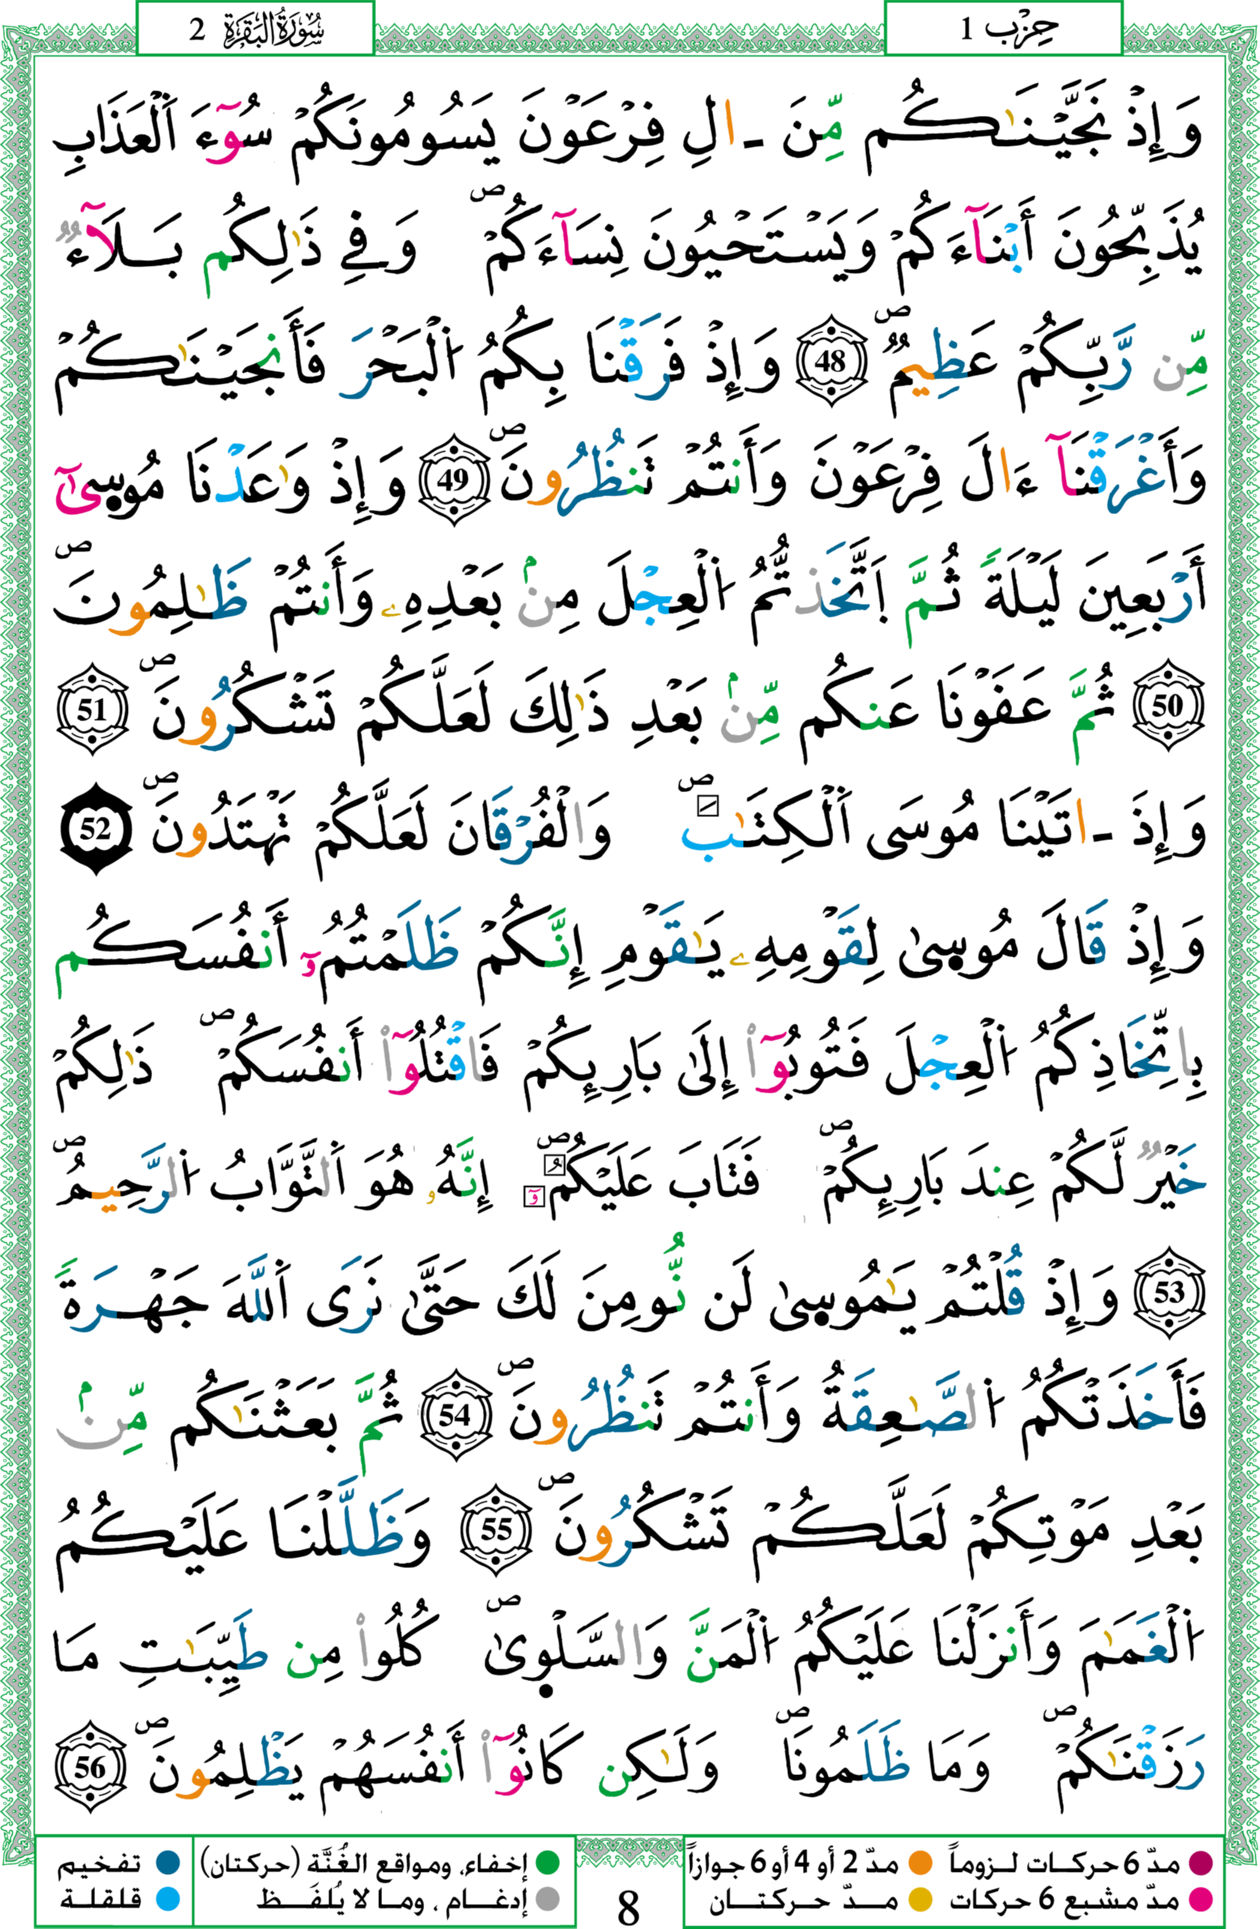 حِزْب 1
سُورَةُ الْبَقَرَةِ 2
وَإِذْ نَجَّيْنَـٰكُم مِّنَ ـ الِ فِرْعَوْنَ يَسُومُونَكُمْ سُوٓءَ اَلْعَذَابِ
يُذَبِّحُونَ أَبْنَآءَكُمْ وَيَسْتَحْيُونَ نِسَآءَكُمْ ۖ وَفِے ذَٰلِكُم بَلَآءٌ
مِّن رَّبِّكُمْ عَظِيمٌ ۖ 48 وَإِذْ فَرَقْنَا بِكُمُ اُلْبَحْرَ فَأَنجَيْنَـٰكُمْ
وَأَغْرَقْنَآ ءَالَ فِرْعَوْنَ وَأَنتُمْ تَنظُرُونَ ۖ 49 وَإِذْ وَٰعَدْنَا مُوسَىٰٓ
أَرْبَعِينَ لَيْلَةً ثُمَّ اَتَّخَذتُّمُ اُلْعِجْلَ مِنۢ بَعْدِهِۦ وَأَنتُمْ ظَـٰلِمُونَ ۖ
50 ثُمَّ عَفَوْنَا عَنكُم مِّنۢ بَعْدِ ذَٰلِكَ لَعَلَّكُمْ تَشْكُرُونَ ۖ 51
وَإِذَ ـ اتَيْنَا مُوسَى اَلْكِتَـٰبَ ۖ وَالْفُرْقَانَ لَعَلَّكُمْ تَهْتَدُونَ ۖ 52
وَإِذْ قَالَ مُوسَىٰ لِقَوْمِهِۦ يَـٰقَوْمِ إِنَّكُمْ ظَلَمْتُمُۥٓ أَنفُسَكُم
بِاتِّخَاذِكُمُ اُلْعِجْلَ فَتُوبُوٓاْ إِلَىٰ بَارِئِكُمْ فَاقْتُلُوٓاْ أَنفُسَكُمْ ۖ ذَٰلِكُمْ
خَيْرٌ لَّكُمْ عِندَ بَارِئِكُمْ ۖ فَتَابَ عَلَيْكُمُۥٓ ۖ إِنَّهُۥ هُوَ اَلتَّوَّابُ اُلرَّحِيمُ ۖ
53 وَإِذْ قُلْتُمْ يَـٰمُوسَىٰ لَن نُّومِنَ لَكَ حَتَّىٰ نَرَى اَللَّهَ جَهْرَةً
فَأَخَذَتْكُمُ اُلصَّـٰعِقَةُ وَأَنتُمْ تَنظُرُونَ ۖ 54 ثُمَّ بَعَثْنَـٰكُم مِّنۢ
بَعْدِ مَوْتِكُمْ لَعَلَّكُمْ تَشْكُرُونَ ۖ 55 وَظَلَّلْنَا عَلَيْكُمُ
اُلْغَمَـٰمَ وَأَنزَلْنَا عَلَيْكُمُ اُلْمَنَّ وَالسَّلْوَىٰ ۖ كُلُواْ مِن طَيِّبَـٰتِ مَا
رَزَقْنَـٰكُمْ ۖ وَمَا ظَلَمُونَا ۖ وَلَـٰكِن كَانُوٓاْ أَنفُسَهُمْ يَظْلِمُونَ ۖ 56
مدّ 6 حركات لـزوماً مدّ 2 أو 4 أو 6 جوازاً
مدّ مشبع 6 حركات مـدّ حـركتـان
8
إخفاء، ومواقع الغُنَّة (حركتان) تفخيم
إدغـام ، ومـا لا يُلفَـظ قلقلة